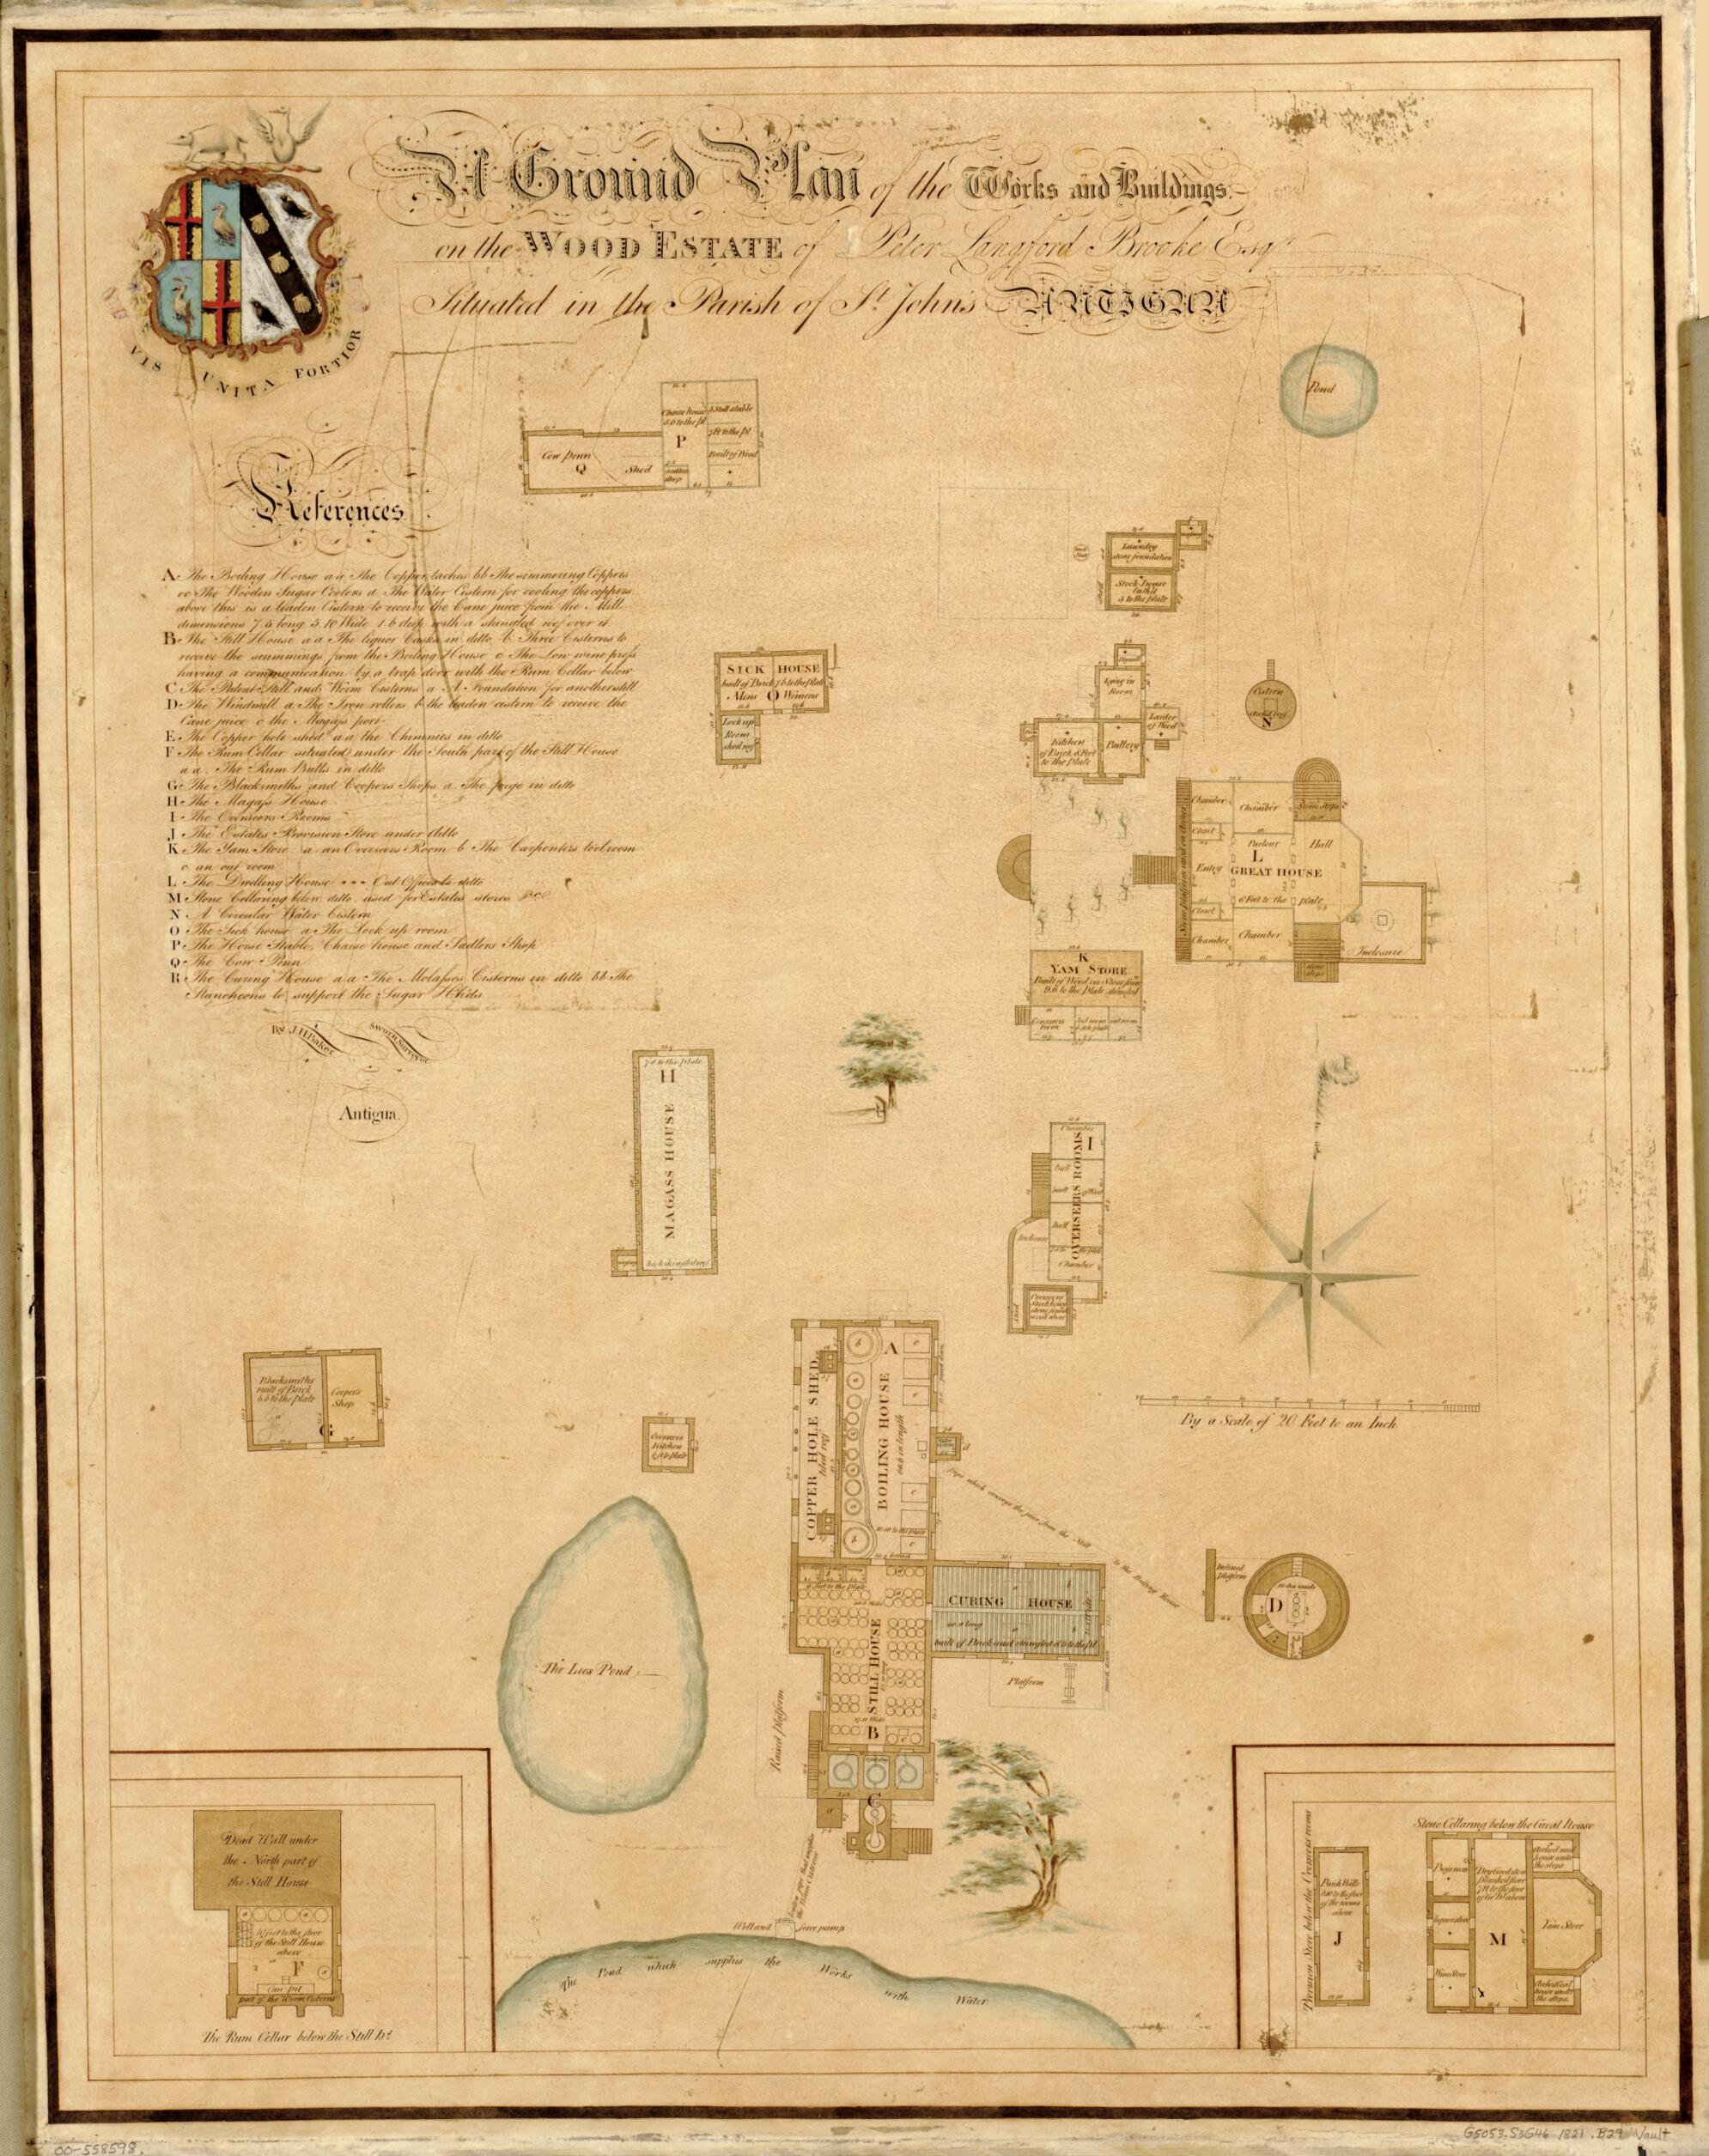 A Ground Plan of the Works and Buildings
on the WOOD ESTATE of Peter Langford Brooke Esqr
Situated in the Parish of St Johns ANTIGUA
VIS UNITA FORTIOR
References
A The Boiling House aa The Copper taches bb The simmering Coppers
cc The Wooden Sugar Coolers d The Water Cistern for cooling the coppers
above this is a leaden Cistern to receive the Cane juce from the Mill
dimensions 7.5 long 5.10 Wide 1.6 deep with a shingled roof over it
B The Still House aa The liquor Casks in ditto b Three Cisterns to
receive the scummings from the Boiling House c The Low wine
having a communication by a trap door with the Rum Cellar below
C The Patent Still and Worm Cisterns a A Foundation for another still
D The Windmill a The Iron rollers b the leaden cistern to receive the
Cane juice c the Magass port
E The Copper hole shed aa the Chimnies in ditto
F The Rum Cellar situated under the South part of the Still House
aa The Rum Butts in ditto
G The Blacksmiths and Coopers Shops a The forge in ditto
H The Magass House
I The Overseers Rooms
J The Estates Provision Store under ditto
K The Yam Store a an Overseers Room b The Carpenters toolroom
c an out room
L The Dwelling House Out Offices to ditto
M Stone Cellaring below ditto used for Estates stores &c
N A Circular Water Cistern
O The Sick house a The Lock up room
P The Horse Stable, Chaise house and Sadlers Shop
Q The Cow Penn
R The Curing House aa The Molasses Cisterns in ditto bb The
Stancheons to support the Sugar Hhds
By J H Baker Sworn Surveyor
Antigua.
Pond
Chaise house
P
8 Stall stable
Built of Wood
Cow Penn
Q
Shed
Laundry
stone foundation
Stock-house
SICK HOUSE
built of Brick 7.6 to the Plate
Mens O Womens
Lock up
Room
shed roof
Room
Larder
of Wood
Kitchen
of Brick 8 Feet
to the Plate
Buttery
Cistern
N
Chamber
Chamber
Stone steps
Closet
Parlour
Hall
L
Entry
GREAT HOUSE
to the plate
Closet
Chamber
Chamber
Inclosure
K
YAM STORE
9.6 to the Plate shingled
Overseers
room
to the Plate
H
MAGASS HOUSE
Chamber
I
OVERSEERS ROOMS
hall
hall
Chamber
Shed
Overseers
Blacksmiths
built of Brick
6.6 to the Plate
Coopers
Shop
G
Overseers
Kitchen
COPPER HOLE SHED
tiled roof
A
BOILING HOUSE
By a Scale of 20 Feet to an Inch
Pipe which conveys the juice from the Mill to the Boiling House
Inclined
Platform
D
CURING HOUSE
built of Brick and shingled
Platform
STILL HOUSE
B
C
Raised Platform
The Lees Pond
Well and force pump
The Pond which supplies the Works with Water
Dead Wall under
the North part of
the Still House
10 feet to the floor
of the Still House
above
F
Can pit
part of the Worm Cisterns
The Rum Cellar below the Still Hs
Provision Store below the Overseers rooms
Brick Walls
of the rooms
above
J
Stone Cellaring below the Great House
Arched
house under
the steps
M
Liquor store
Wine Store
Yam Store
Arched Coal
house under
the steps
00-558598.
G5053.S3G46 1821 .B29 Vault